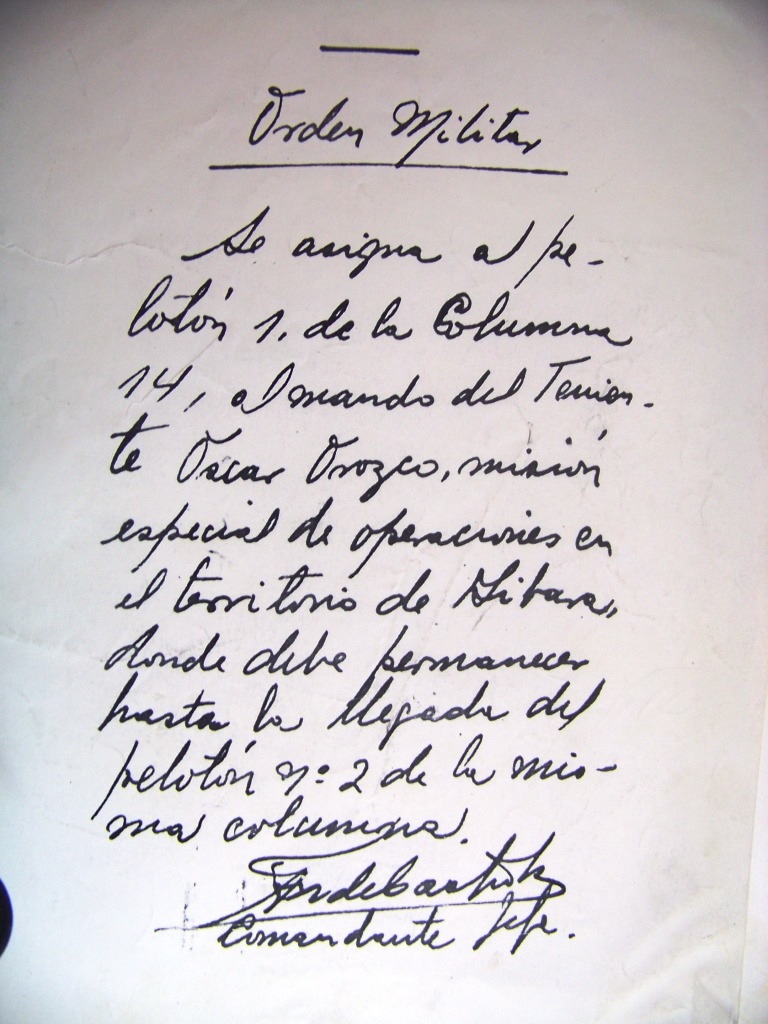 Orden Militar
Se asigna al pe-
lotón 1, de la Columna
14, al mando del Tenien-
te Oscar Orozco, misión
especial de operaciones en
el territorio de Gibara,
donde debe permanecer
hasta la llegada del
pelotón nº 2 de la mis-
ma columna.
Comandante Jefe.